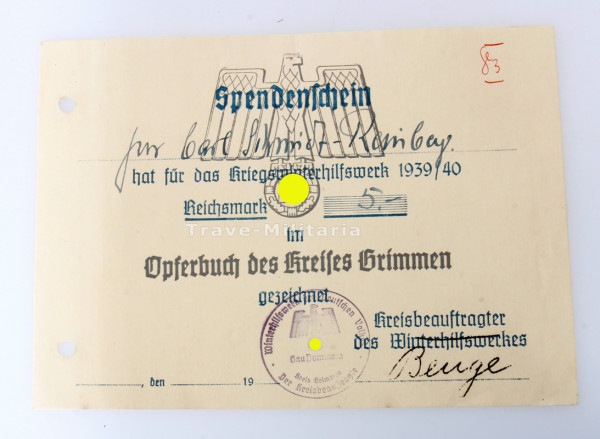 83
Spendenschein
Carl Schmidt-
hat für das Kriegswinterhilfswerk 1939/40
Reichsmark 5.-
Trave-Militaria
im
Opferbuch des Kreises Grimmen
gezeichnet
Kreisbeauftragter
des Winterhilfswerkes
Winterhilfswerk Deutschen Volkes
Gau Pommern
Kreis Grimmen
Der Kreisbeauftragte
, den 19